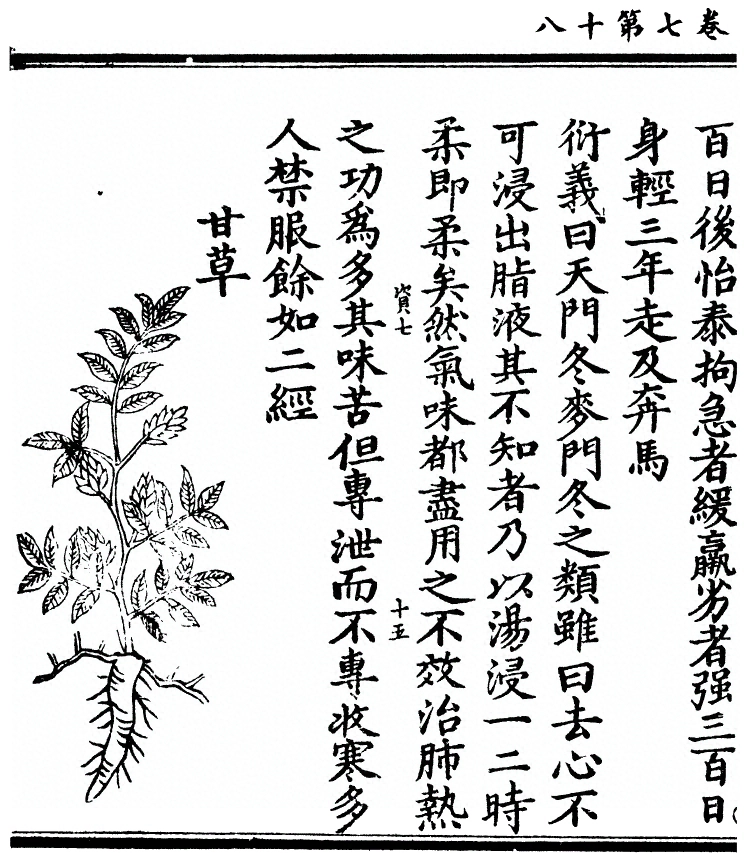 卷七第十八
百日後怡泰拘急者緩羸劣者强三百日
身輕三年走及奔馬
衍義曰天門冬麥門冬之類雖曰去心不
可浸出脂液其不知者乃以湯浸一二時
柔即柔矣然氣味都盡用之不效治肺熱
資七
十五
之功爲多其味苦但專泄而不專收寒多
人禁服餘如二經
甘草